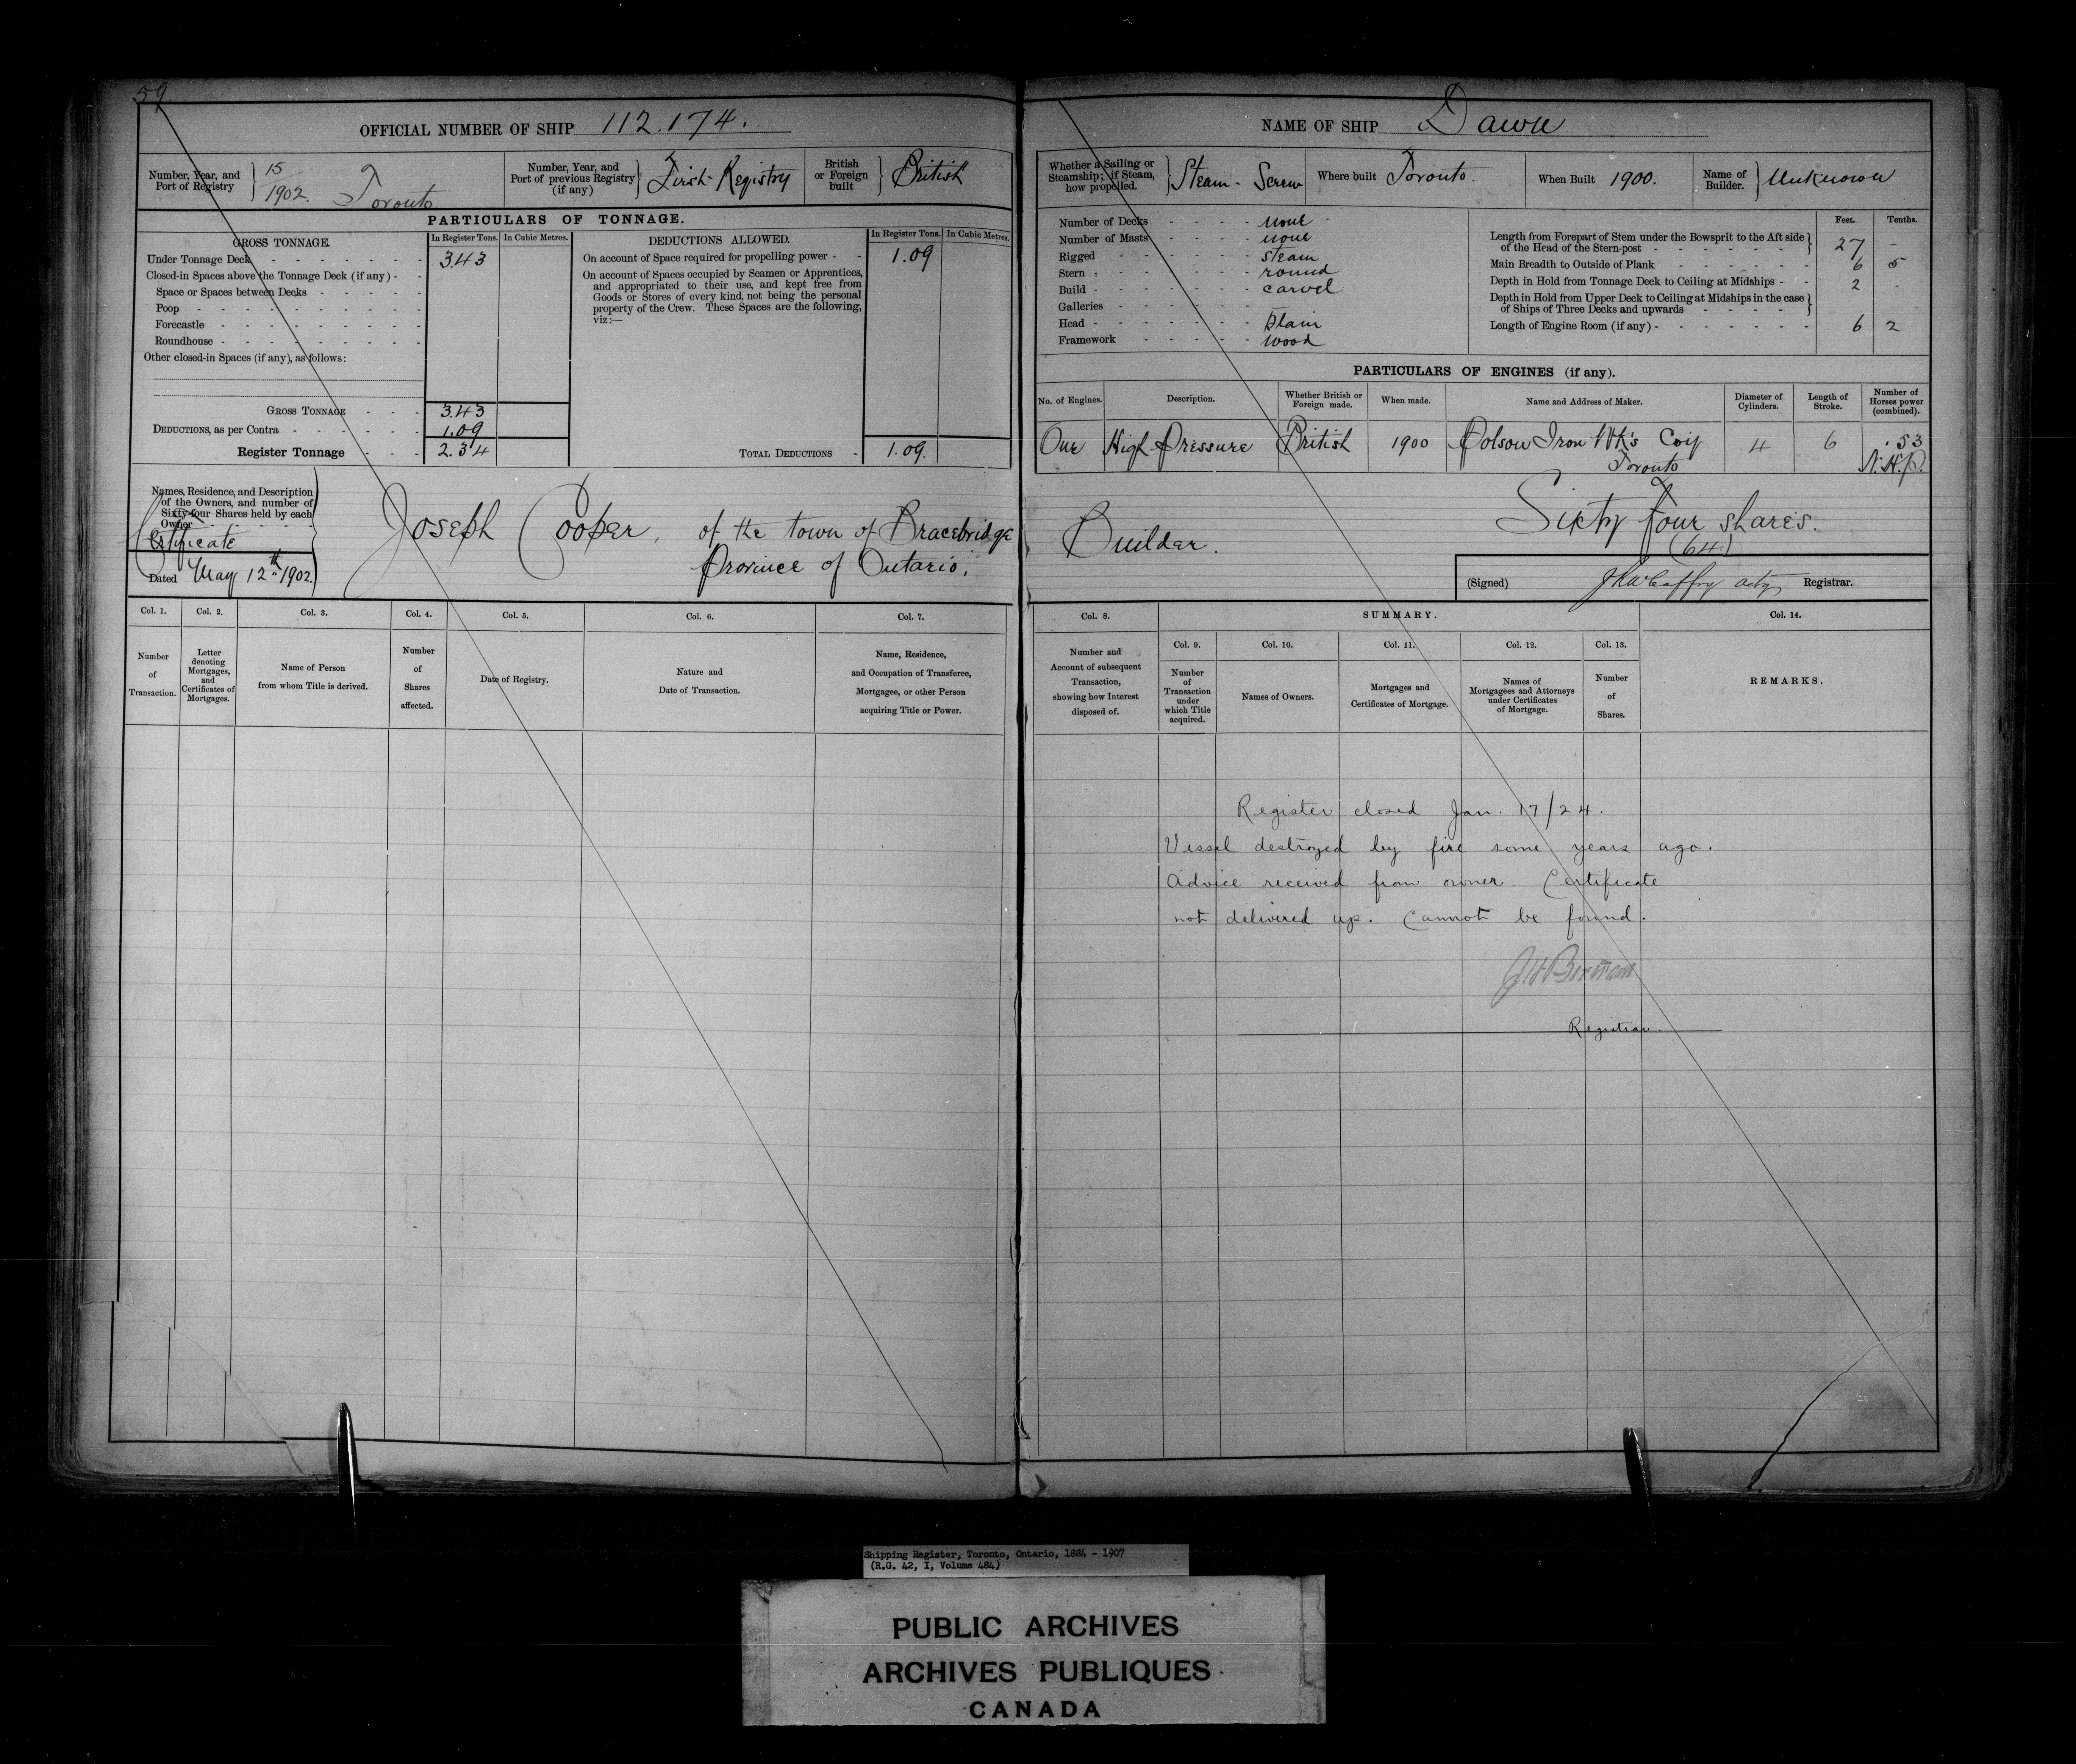 59
OFFICIAL NUMBER OF SHIP 112.174.
Number, Year, and Port of Registry } 15/1902. Toronto
Number, Year, and Port of previous Registry (if any) } First Registry
British or Foreign built } British
PARTICULARS OF TONNAGE.
GROSS TONNAGE. In Register Tons. In Cubic Metres. DEDUCTIONS ALLOWED. In Register Tons. In Cubic Metres.
Under Tonnage Deck 3.43
Closed-in Spaces above the Tonnage Deck (if any)
Space or Spaces between Decks
Poop
Forecastle
Roundhouse
Other closed-in Spaces (if any), as follows:
On account of Space required for propelling power 1.09
On account of Spaces occupied by Seamen or Apprentices,
and appropriated to their use, and kept free from
Goods or Stores of every kind, not being the personal
property of the Crew. These Spaces are the following,
viz:—
GROSS TONNAGE 3.43
DEDUCTIONS, as per Contra 1.09
Register Tonnage 2.34
TOTAL DEDUCTIONS 1.09.
Names, Residence, and Description
of the Owners, and number of
Sixty-four Shares held by each
Owner
Certificate
Dated May 12th 1902.
Joseph Cooper, of the town of Bracebridge
Province of Ontario,
Col. 1. Col. 2. Col. 3. Col. 4. Col. 5. Col. 6. Col. 7.
Number of Transaction.
Letter denoting Mortgages, and Certificates of Mortgages.
Name of Person from whom Title is derived.
Number of Shares affected.
Date of Registry.
Nature and Date of Transaction.
Name, Residence, and Occupation of Transferee, Mortgagee, or other Person acquiring Title or Power.
NAME OF SHIP Dawn
Whether a Sailing or Steamship; if Steam, how propelled. } Steam - Screw
Where built Toronto.
When Built 1900.
Name of Builder. } Unknown
Number of Decks none
Number of Masts none
Rigged steam
Stern round
Build carvel
Galleries
Head plain
Framework wood
Feet. Tenths.
Length from Forepart of Stem under the Bowsprit to the Aft side
of the Head of the Stern-post } 27 -
Main Breadth to Outside of Plank 6 5
Depth in Hold from Tonnage Deck to Ceiling at Midships 2 -
Depth in Hold from Upper Deck to Ceiling at Midships in the case
of Ships of Three Decks and upwards }
Length of Engine Room (if any) 6 2
PARTICULARS OF ENGINES (if any).
No. of Engines. Description. Whether British or Foreign made. When made. Name and Address of Maker. Diameter of Cylinders. Length of Stroke. Number of Horses power (combined).
One High Pressure British 1900 Polson Iron Wk's Coy 4 6 .53
Toronto N.H.P.
Builder. Sixty four shares.
(64)
(Signed) acty Registrar.
Col. 8. SUMMARY. Col. 14.
Col. 9. Col. 10. Col. 11. Col. 12. Col. 13.
Number and Account of subsequent Transaction, showing how Interest disposed of.
Number of Transaction under which Title acquired.
Names of Owners.
Mortgages and Certificates of Mortgage.
Names of Mortgagees and Attorneys under Certificates of Mortgage.
Number of Shares.
REMARKS.
Register closed Jan. 17/24.
Vessel destroyed by fire some years ago.
Advice received from owner. Certificate
not delivered up. Cannot be found.
Registrar.
Shipping Register, Toronto, Ontario, 1884 - 1907
(R.G. 42, I, Volume 484)
PUBLIC ARCHIVES
ARCHIVES PUBLIQUES
CANADA